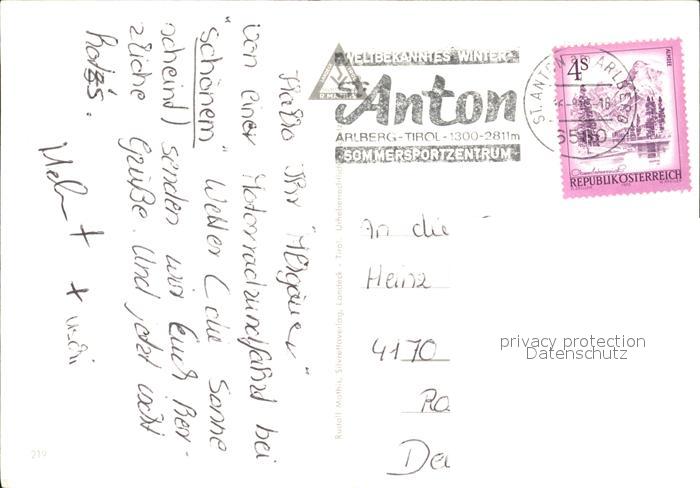 Hallo Ihr "Allgäuer"
Von einer Motorradrundfahrt bei
"schönem" Wetter (die Sonne
scheint) senden wir Euch herz-
zliche Grüße. Und jetzt
+
+ Uschi
WELTBEKANNTES WINTER-
ST. Anton
ARLBERG-TIROL-1300-2811m
SOMMERSPORTZENTRUM
ST. ANTON ARLBERG
6580
4S
ALMSEE
REPUBLIK ÖSTERREICH
An die
Heinz
4170
Ra
De
privacy protection
Datenschutz
Rudolf Mathis, Silvrettaverlag, Landeck - Tirol
219